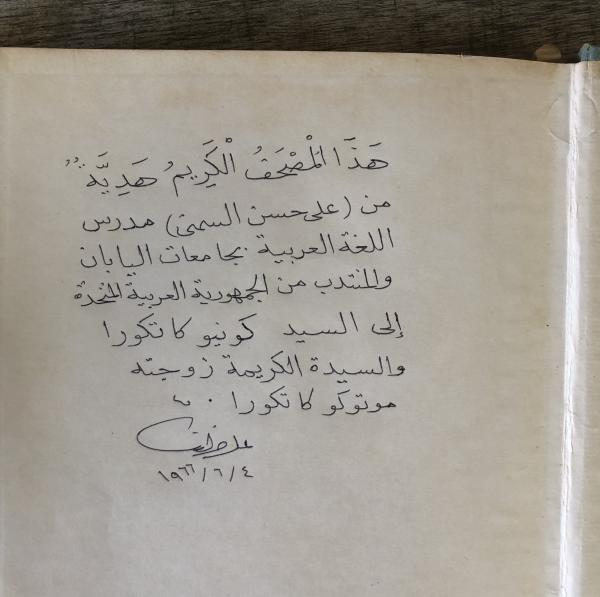 هَذَا الْمُصْحَفُ الْكَرِيمُ هَدِيَّةٌ
من (على حسن السمنى) مدرس
اللغة العربية بجامعات اليابان
والمنتدب من الجمهورية العربية المتحدة
إلى السيد كونيو كاتكورا
والسيدة الكريمة زوجته
موتوكو كاتكورا .
١٩٦٦/٦/٤